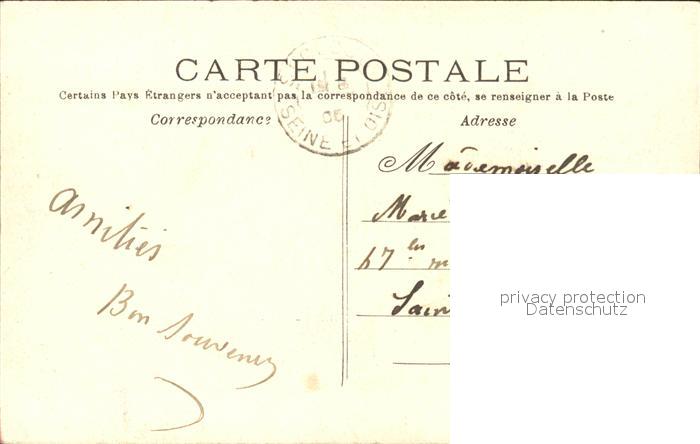 CARTE POSTALE
Certains Pays Étrangers n'acceptent pas la correspondance de ce côté, se renseigner à la Poste
Correspondance
Adresse
SEINE ET OISE
Mademoiselle
Amitiés
Bon Souvenir
privacy protection
Datenschutz